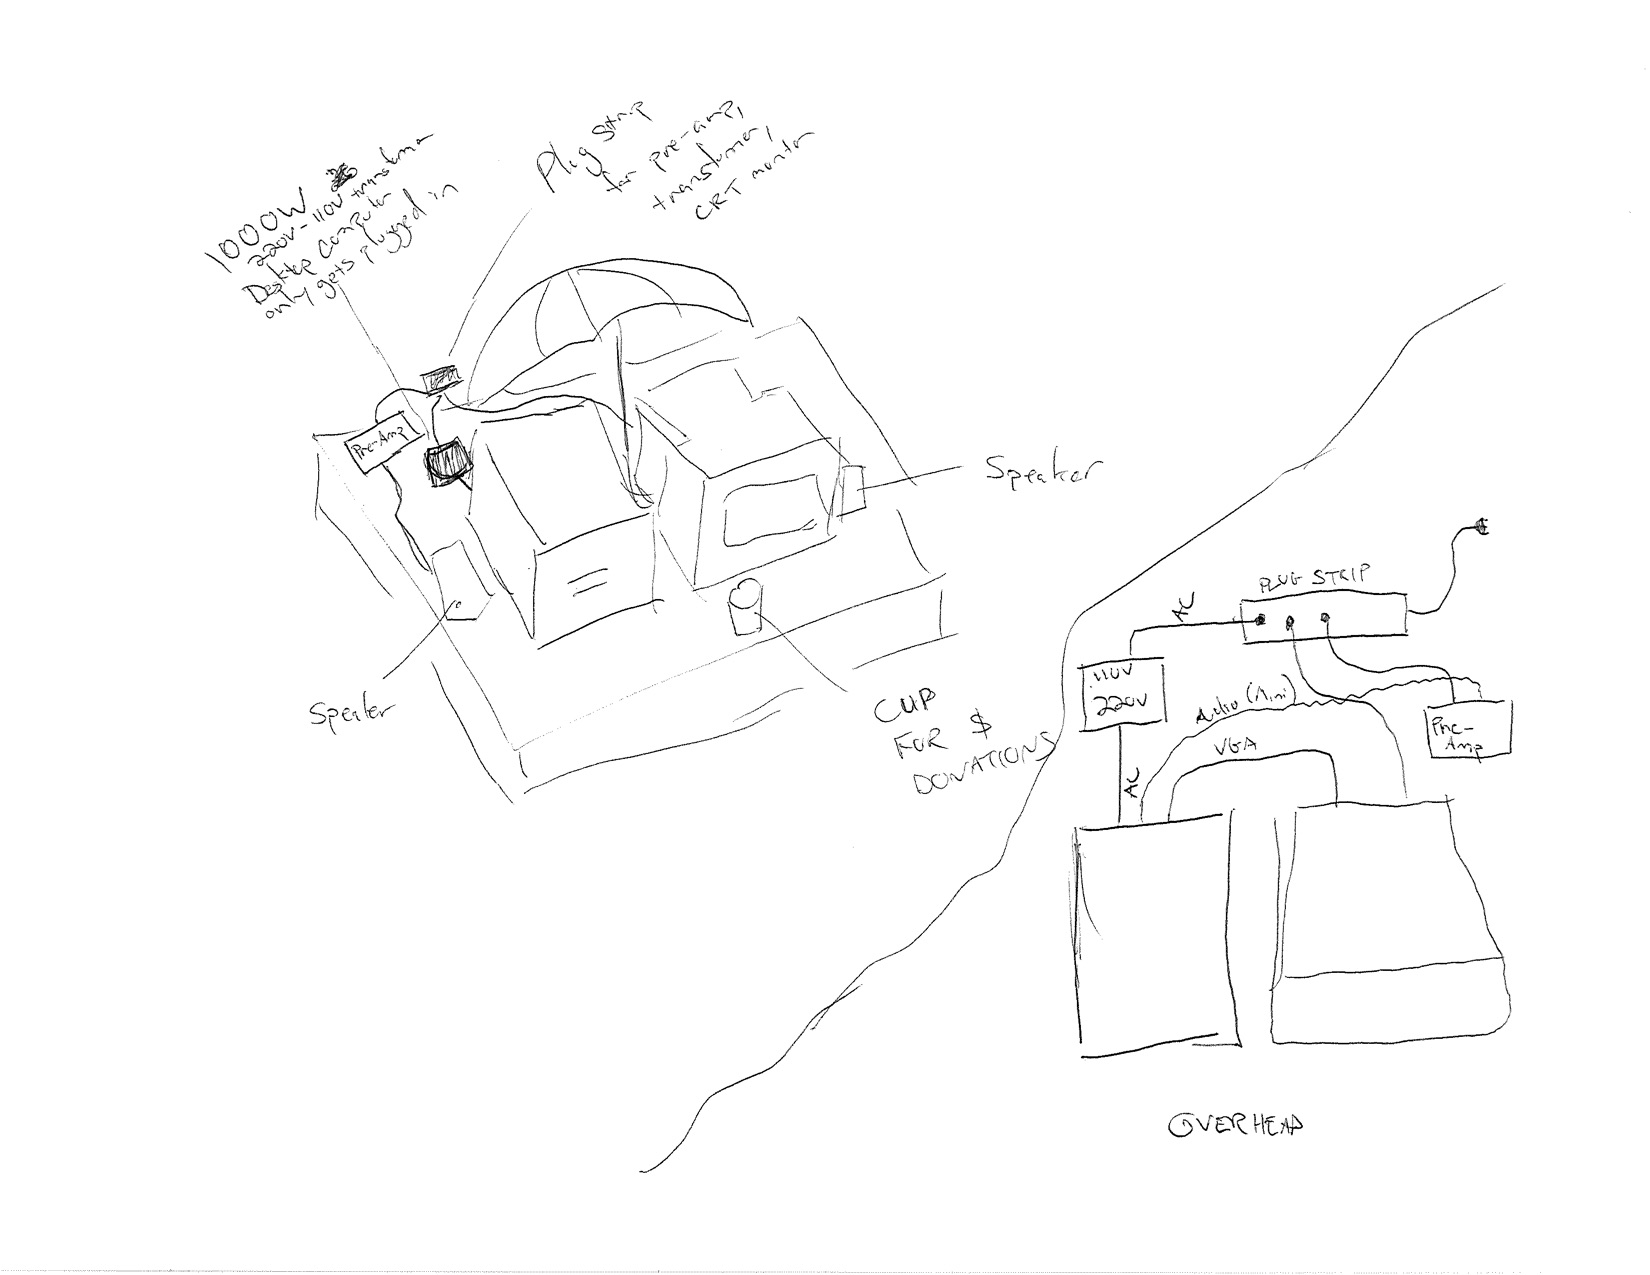 1000W
220V-110V transformer
Desktop Computer
only gets plugged in
Plug Strip
for pre-amp,
transformer,
CRT monitor
Pre-Amp
Speaker
Speaker
CUP
FOR $
DONATIONS
PLUG STRIP
AC
110V
220V
Audio (Mini)
Pre-
Amp
VGA
AC
OVERHEAD